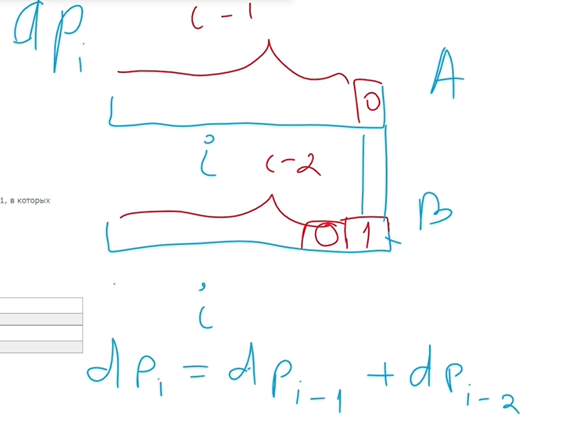 dp_i
i-1
0
A
i
i-2
1, в которых
0 1
B
i
dp_i = dp_{i-1} + dp_{i-2}